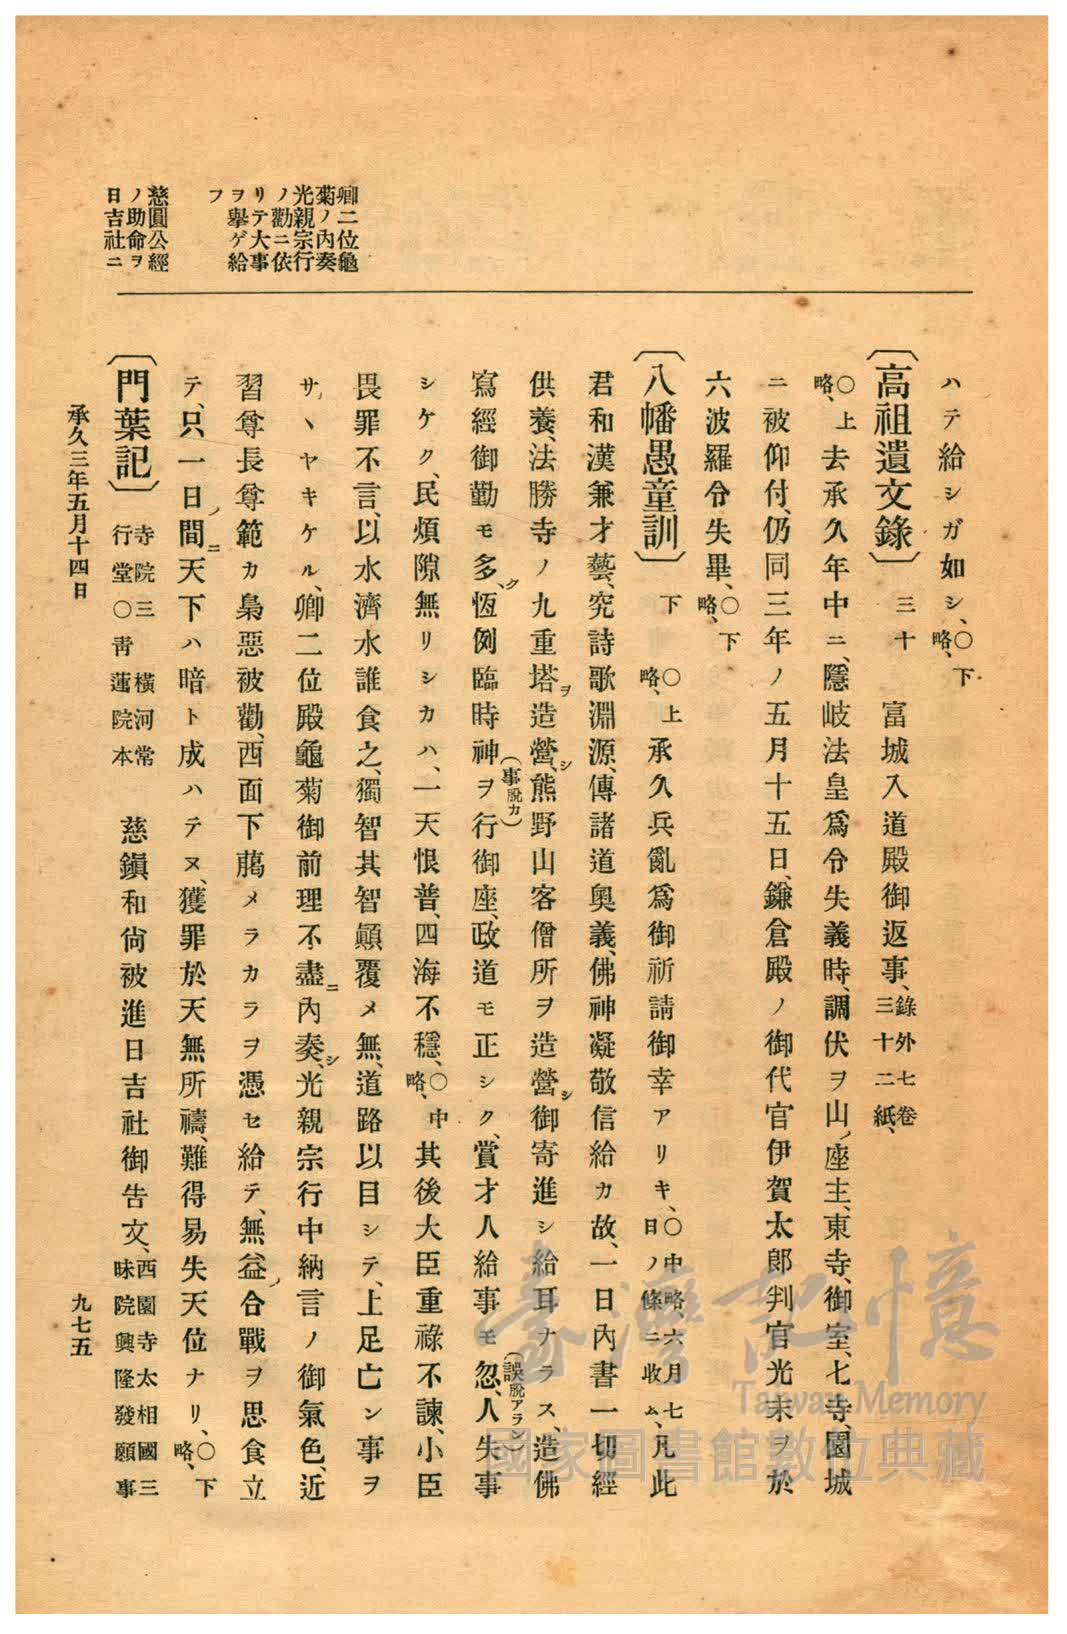 卿二位龜
菊ノ內奏
光親宗行
ノ勸ニ依
リテ大事
ヲ擧ゲ給
フ
慈圓公經
ノ助命ヲ
日吉社ニ
ハテ給シガ如シ、〇下略、
〔高祖遺文錄〕三十 富城入道殿御返事、錄外七卷三十二紙、
〇上略、去承久年中ニ、隱岐法皇爲令失義時、調伏ヲ山ノ座主、東寺、御室、七寺、園城
ニ被仰付、仍同三年ノ五月十五日、鎌倉殿ノ御代官伊賀太郎判官光末ヲ於
六波羅令失畢、〇下略、
〔八幡愚童訓〕下 〇上略、承久兵亂爲御祈請御幸アリキ、〇中略、六月七日ノ條ニ收ム、凡此
君和漢兼才藝、究詩歌淵源、傳諸道奧義、佛神凝敬信給カ故、一日內書一切經
供養、法勝寺ノ九重塔ヲ造營シ、熊野山客僧所ヲ造營シ御寄進シ給耳ナラス、造佛
寫經御勤モ多ク、恆例臨時神(事脫カ)ヲ行御座、政道モ正シク、賞才人給事モ忽、(誤脫アラン)人失事
シケク、民煩隙無リシカハ、一天恨普、四海不穩、〇中略、其後大臣重祿不諫、小臣
畏罪不言、以水濟水誰食之、獨智其智顚覆メ無、道路以目シテ、上足亡ン事ヲ
サヽヤキケル、卿二位殿龜菊御前理不盡ニ內奏シ、光親宗行中納言ノ御氣色、近
習尊長尊範カ梟惡被勸、西面下﨟メラカラヲ憑セ給テ、無益ノ合戰ヲ思食立
テ、只一日ノ間ニ天下ハ暗ト成ハテヌ、獲罪於天無所禱、難得易失天位ナリ、〇下略、
〔門葉記〕寺院三 橫河常行堂〇靑蓮院本 慈鎭和尙被進日吉社御告文、西園寺太相國三昧院興隆發願事
承久三年五月十四日
九七五
臺灣記憶
Taiwan Memory
國家圖書館數位典藏